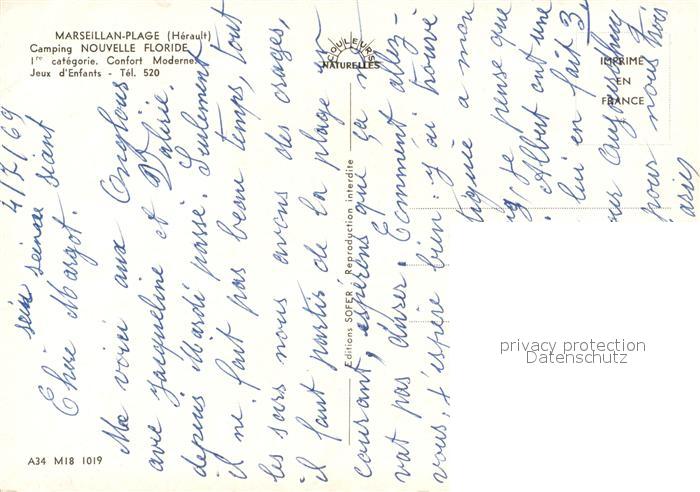 MARSEILLAN-PLAGE (Hérault)
Camping NOUVELLE FLORIDE
1re catégorie. Confort Moderne.
Jeux d'Enfants - Tél. 520
COULEURS
NATURELLES
IMPRIMÉ
EN
FRANCE
Editions SOFER - Reproduction interdite
A34 M18 1019
privacy protection
Datenschutz
4/7/69
Chère Margot.
Me voici aux Onglous
avec Jacqueline et Valérie.
depuis Mardi passé. Seulement
il ne fait pas beau temps, tout
les soirs nous avons des orages,
il faut partir de la plage en
courant, espérons que ça ne
vat pas durer. Comment allez-
vous, j'espère bien : j'ai trouvé
a mon
je pense que
Albert ont une
lui en fait 3
aujourd'hui
pour nous trois